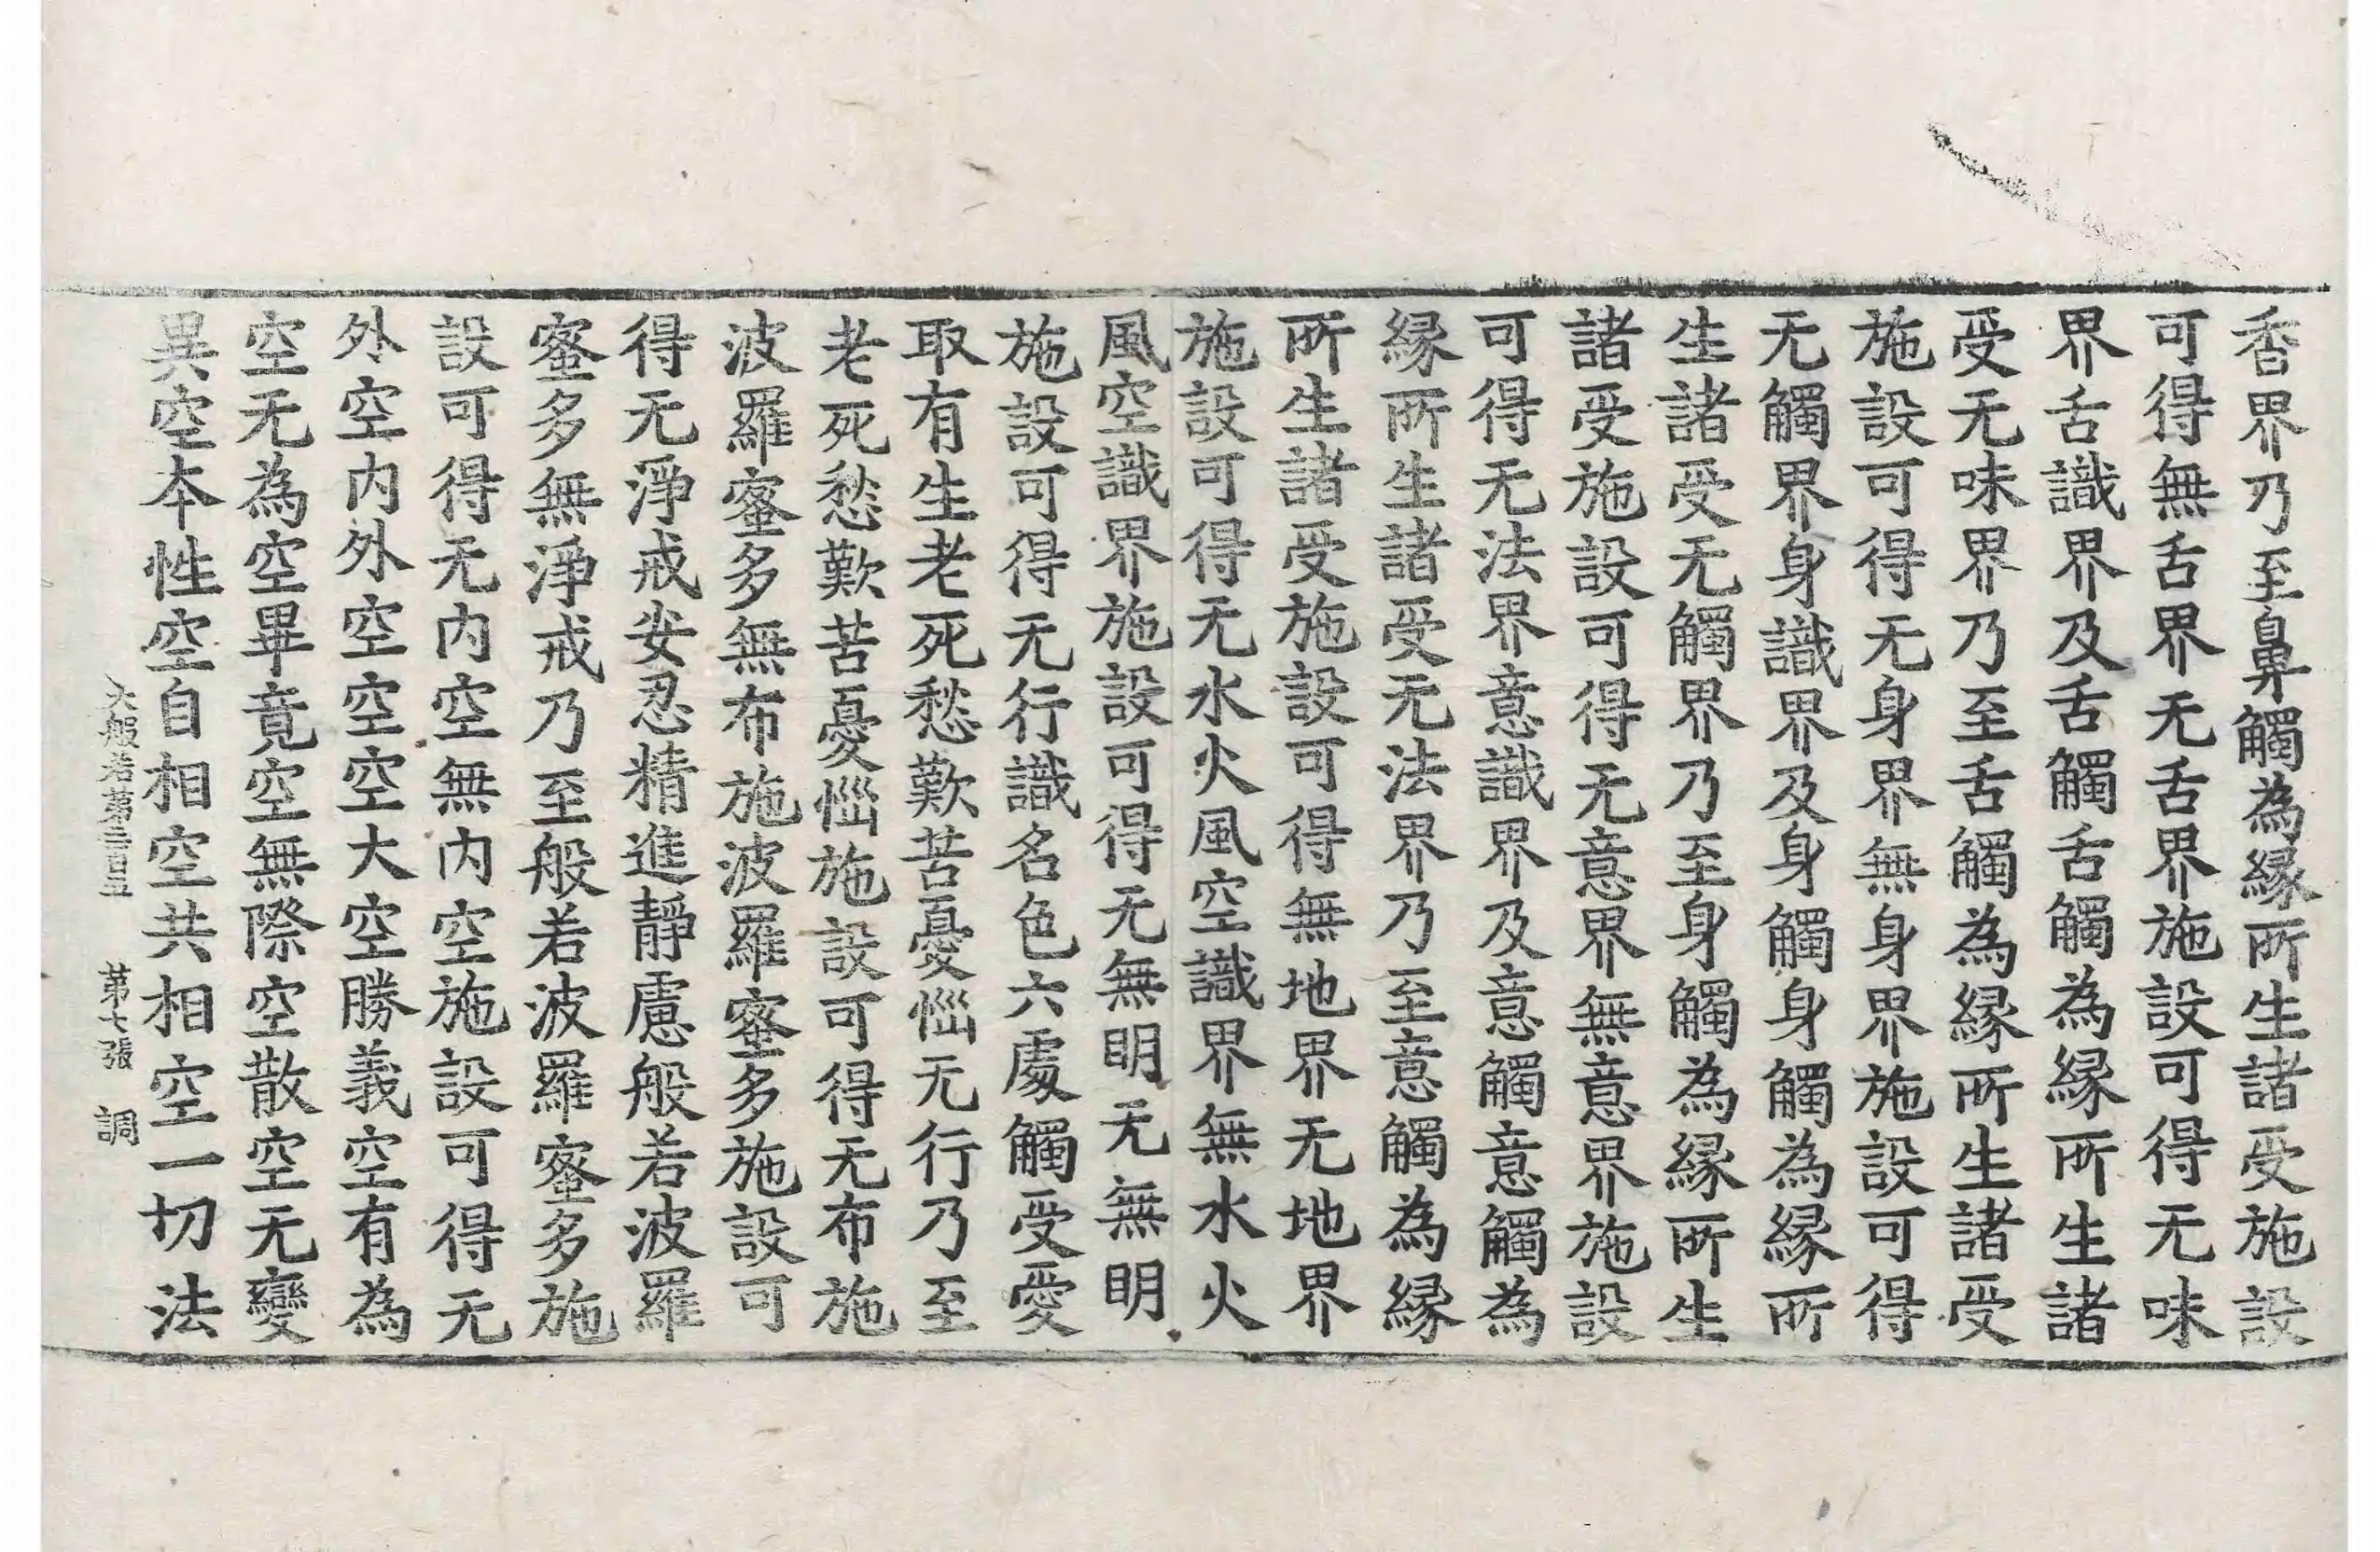 香界乃至鼻觸為緣所生諸受施設
可得無舌界无舌界施設可得无味
界舌識界及舌觸舌觸為緣所生諸
受无味界乃至舌觸為緣所生諸受
施設可得无身界無身界施設可得
无觸界身識界及身觸身觸為緣所
生諸受无觸界乃至身觸為緣所生
諸受施設可得无意界無意界施設
可得无法界意識界及意觸意觸為
緣所生諸受无法界乃至意觸為緣
所生諸受施設可得無地界无地界
施設可得无水火風空識界無水火
風空識界施設可得无無明无無明
施設可得无行識名色六處觸受愛
取有生老死愁歎苦憂惱无行乃至
老死愁歎苦憂惱施設可得无布施
波羅蜜多無布施波羅蜜多施設可
得无淨戒安忍精進靜慮般若波羅
蜜多無淨戒乃至般若波羅蜜多施
設可得无内空無内空施設可得无
外空内外空空空大空勝義空有為
空无為空畢竟空無際空散空无變
異空本性空自相空共相空一切法
大般若第三百五 第七張 調